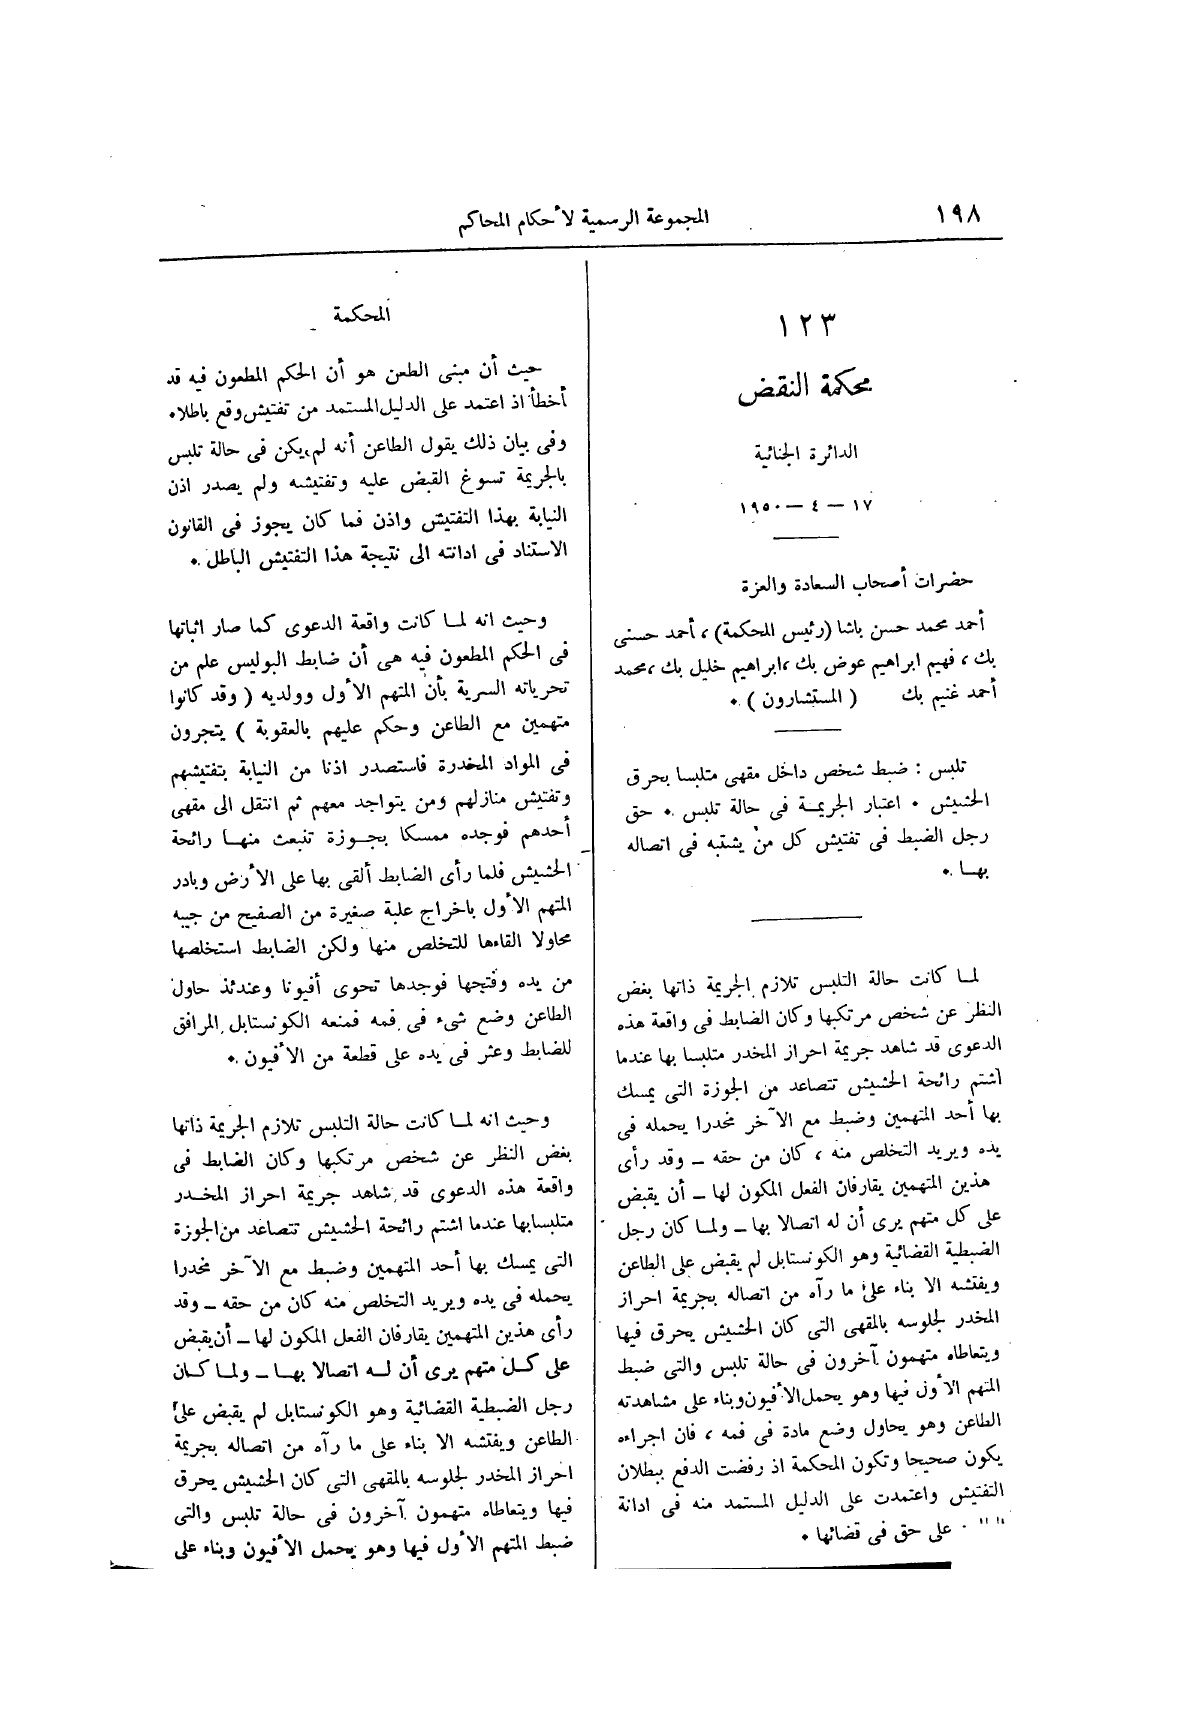 ١٩٨
المجموعة الرسمية لأحكام المحاكم
١٢٣
محكمة النقض
الدائرة الجنائية
١٧ — ٤ — ١٩٥٠
حضرات أصحاب السعادة والعزة
أحمد محمد حسن باشا (رئيس المحكمة) ، أحمد حسنى
بك ، فهيم ابراهيم عوض بك ، ابراهيم خليل بك ، محمد
أحمد غنيم بك ( المستشارون ) .
تلبس : ضبط شخص داخل مقهى متلبسا بحرق
الحشيش . اعتبار الجريمة فى حالة تلبس . حق
رجل الضبط فى تفتيش كل من يشتبه فى اتصاله
بها .
لما كانت حالة التلبس تلازم الجريمة ذاتها بغض
النظر عن شخص مرتكبها وكان الضابط فى واقعة هذه
الدعوى قد شاهد جريمة احراز المخدر متلبسا بها عندما
اشتم رائحة الحشيش تتصاعد من الجوزة التى يمسك
بها أحد المتهمين وضبط مع الآخر مخدرا يحمله فى
يده ويريد التخلص منه ، كان من حقه — وقد رأى
هذين المتهمين يقارفان الفعل المكون لها — أن يقبض
على كل متهم يرى أن له اتصالا بها — ولما كان رجل
الضبطية القضائية وهو الكونستابل لم يقبض على الطاعن
ويفتشه الا بناء على ما رآه من اتصاله بجريمة احراز
المخدر لجلوسه بالمقهى التى كان الحشيش يحرق فيها
ويتعاطاه متهمون آخرون فى حالة تلبس والتى ضبط
المتهم الأول فيها وهو يحمل الأفيون وبناء على مشاهدته
الطاعن وهو يحاول وضع مادة فى فمه ، فان اجراءه
يكون صحيحا وتكون المحكمة اذ رفضت الدفع ببطلان
التفتيش واعتمدت على الدليل المستمد منه فى ادانة
على حق فى قضائها .
المحكمة
حيث أن مبنى الطعن هو أن الحكم المطعون فيه قد
أخطأ اذ اعتمد على الدليل المستمد من تفتيش وقع باطلا .
وفى بيان ذلك يقول الطاعن أنه لم يكن فى حالة تلبس
بالجريمة تسوغ القبض عليه وتفتيشه ولم يصدر اذن
النيابة بهذا التفتيش واذن فما كان يجوز فى القانون
الاستناد فى ادانته الى نتيجة هذا التفتيش الباطل .
وحيث انه لما كانت واقعة الدعوى كما صار اثباتها
فى الحكم المطعون فيه هى أن ضابط البوليس علم من
تحرياته السرية بأن المتهم الأول وولديه ( وقد كانوا
متهمين مع الطاعن وحكم عليهم بالعقوبة ) يتجرون
فى المواد المخدرة فاستصدر اذنا من النيابة بتفتيشهم
وتفتيش منازلهم ومن يتواجد معهم ثم انتقل الى مقهى
أحدهم فوجده ممسكا بجوزة تنبعث منها رائحة
الحشيش فلما رأى الضابط ألقى بها على الأرض وبادر
المتهم الأول باخراج علبة صغيرة من الصفيح من جيبه
محاولا القاءها للتخلص منها ولكن الضابط استخلصها
من يده وفتحها فوجدها تحوى أفيونا وعندئذ حاول
الطاعن وضع شىء فى فمه فمنعه الكونستابل المرافق
للضابط وعثر فى يده على قطعة من الأفيون .
وحيث انه لما كانت حالة التلبس تلازم الجريمة ذاتها
بغض النظر عن شخص مرتكبها وكان الضابط فى
واقعة هذه الدعوى قد شاهد جريمة احراز المخدر
متلبسا بها عندما اشتم رائحة الحشيش تتصاعد من الجوزة
التى يمسك بها أحد المتهمين وضبط مع الآخر مخدرا
يحمله فى يده ويريد التخلص منه كان من حقه — وقد
رأى هذين المتهمين يقارفان الفعل المكون لها — أن يقبض
على كل متهم يرى أن له اتصالا بها — ولما كان
رجل الضبطية القضائية وهو الكونستابل لم يقبض على
الطاعن ويفتشه الا بناء على ما رآه من اتصاله بجريمة
احراز المخدر لجلوسه بالمقهى التى كان الحشيش يحرق
فيها ويتعاطاه متهمون آخرون فى حالة تلبس والتى
ضبط المتهم الأول فيها وهو يحمل الأفيون وبناء على